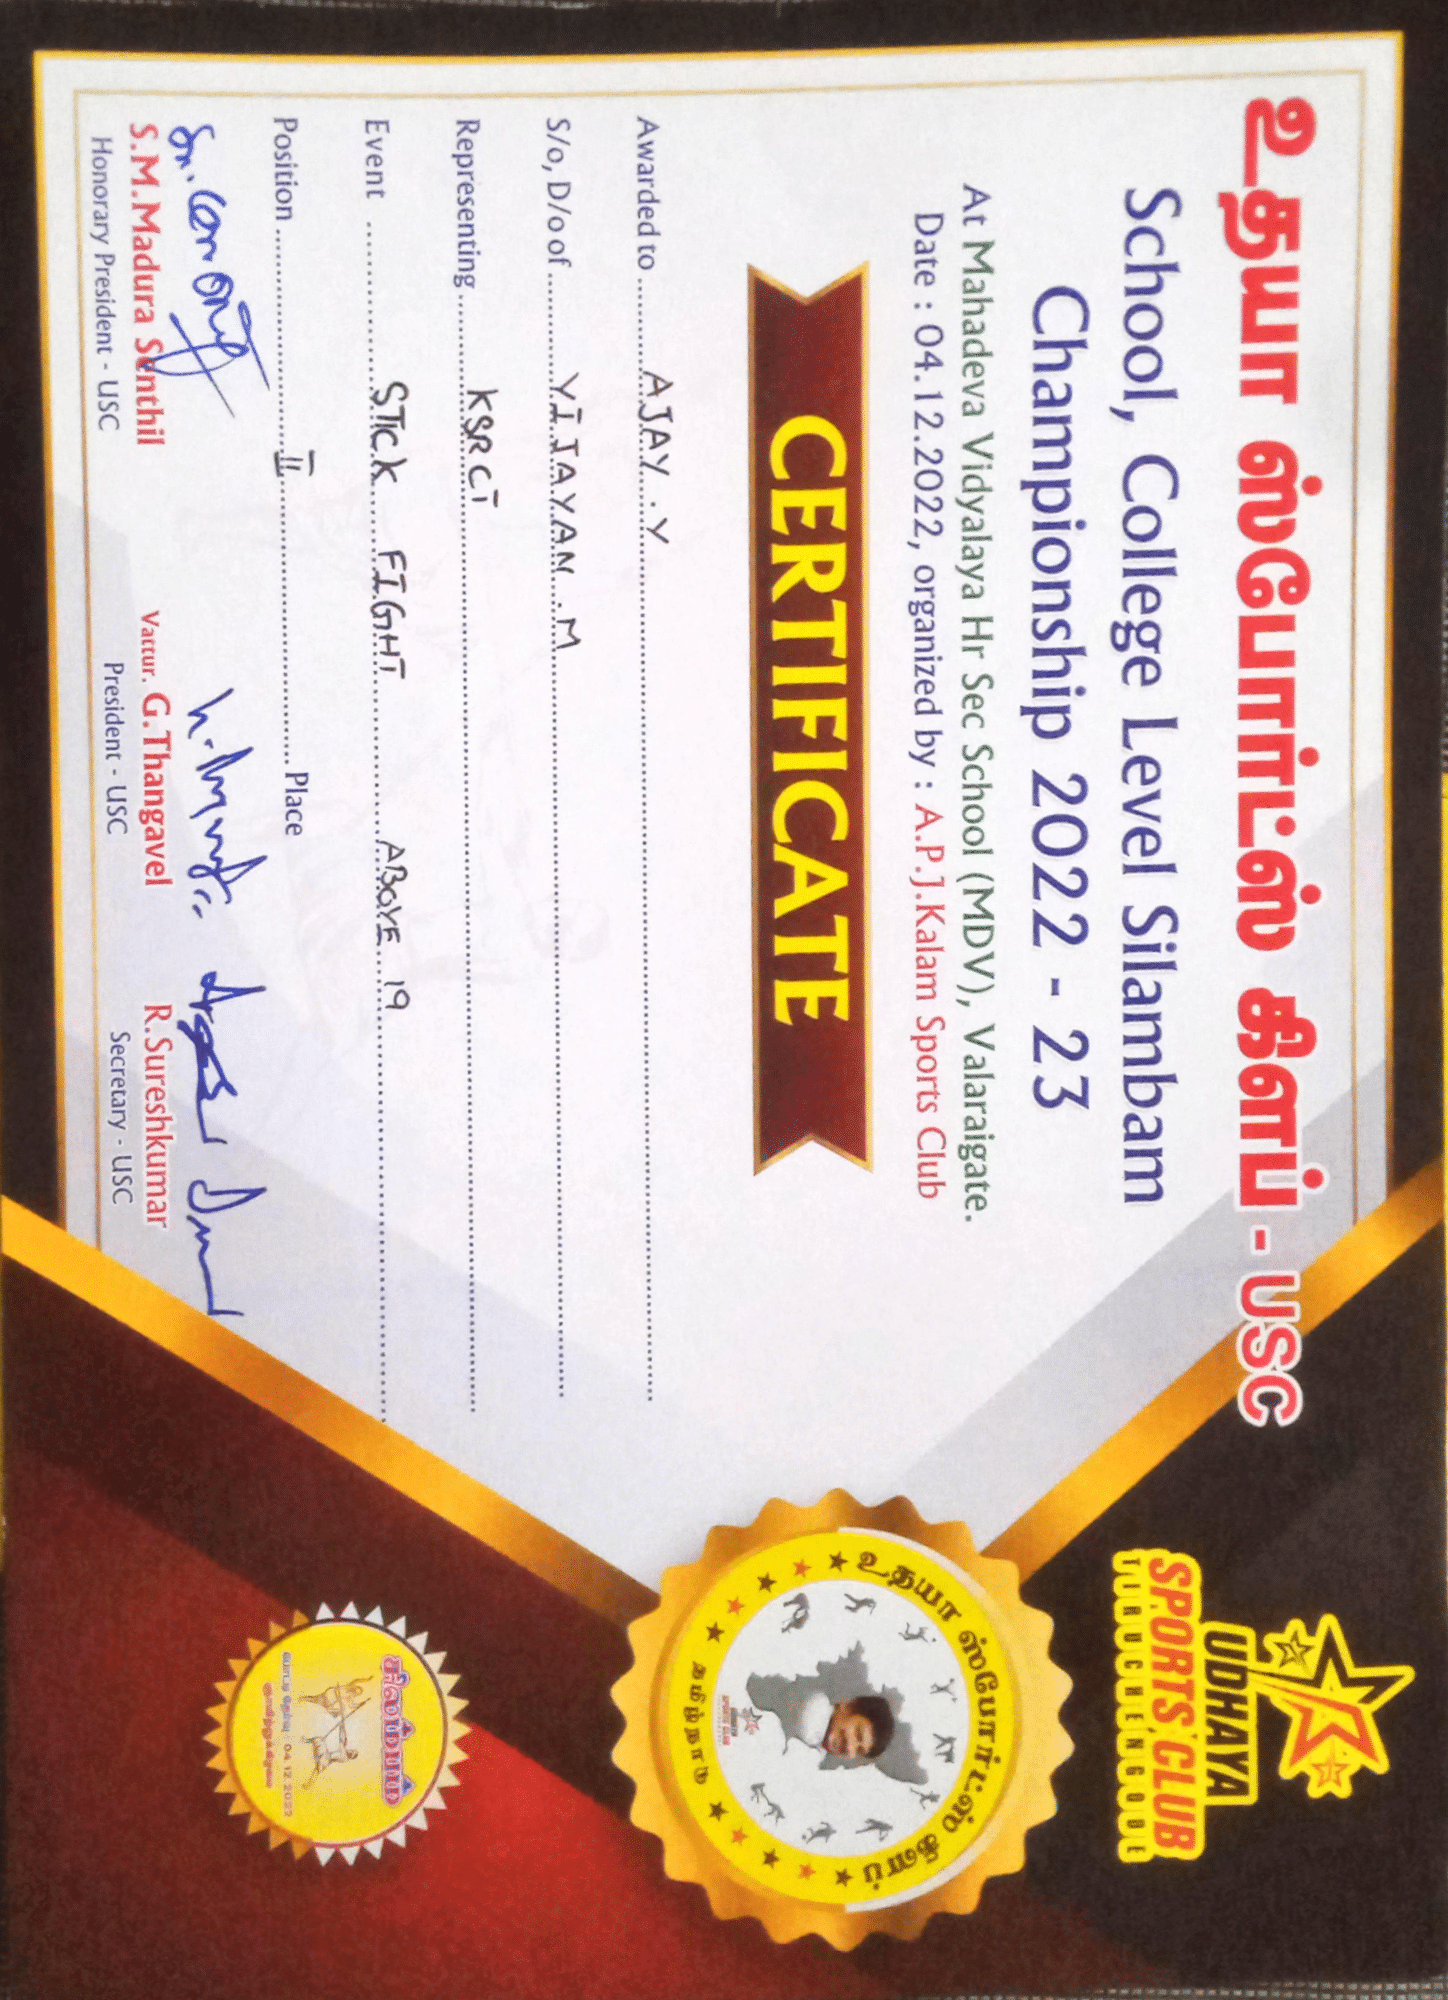 உதயா ஸ்போர்ட்ஸ் கிளப் - USC
School, College Level Silambam
Championship 2022 - 23
At Mahadeva Vidyalaya Hr Sec School (MDV), Valaraigate.
Date : 04.12.2022, organized by : A.P.J.Kalam Sports Club
CERTIFICATE
Awarded to AJAY . V
S/o, D/o of VIJAYAN . M
Representing KSRCT
Event STICK FIGHT ABOVE 19
Position II Place
S.M.Madura Senthil
Honorary President - USC
Vattur. G.Thangavel
President - USC
R.Sureshkumar
Secretary - USC
UDHAYA
SPORTS CLUB
TIRUCHENGODE
உதயா ஸ்போர்ட்ஸ் கிளப்
தமிழ்நாடு
சிலம்பம்
04.12.2022